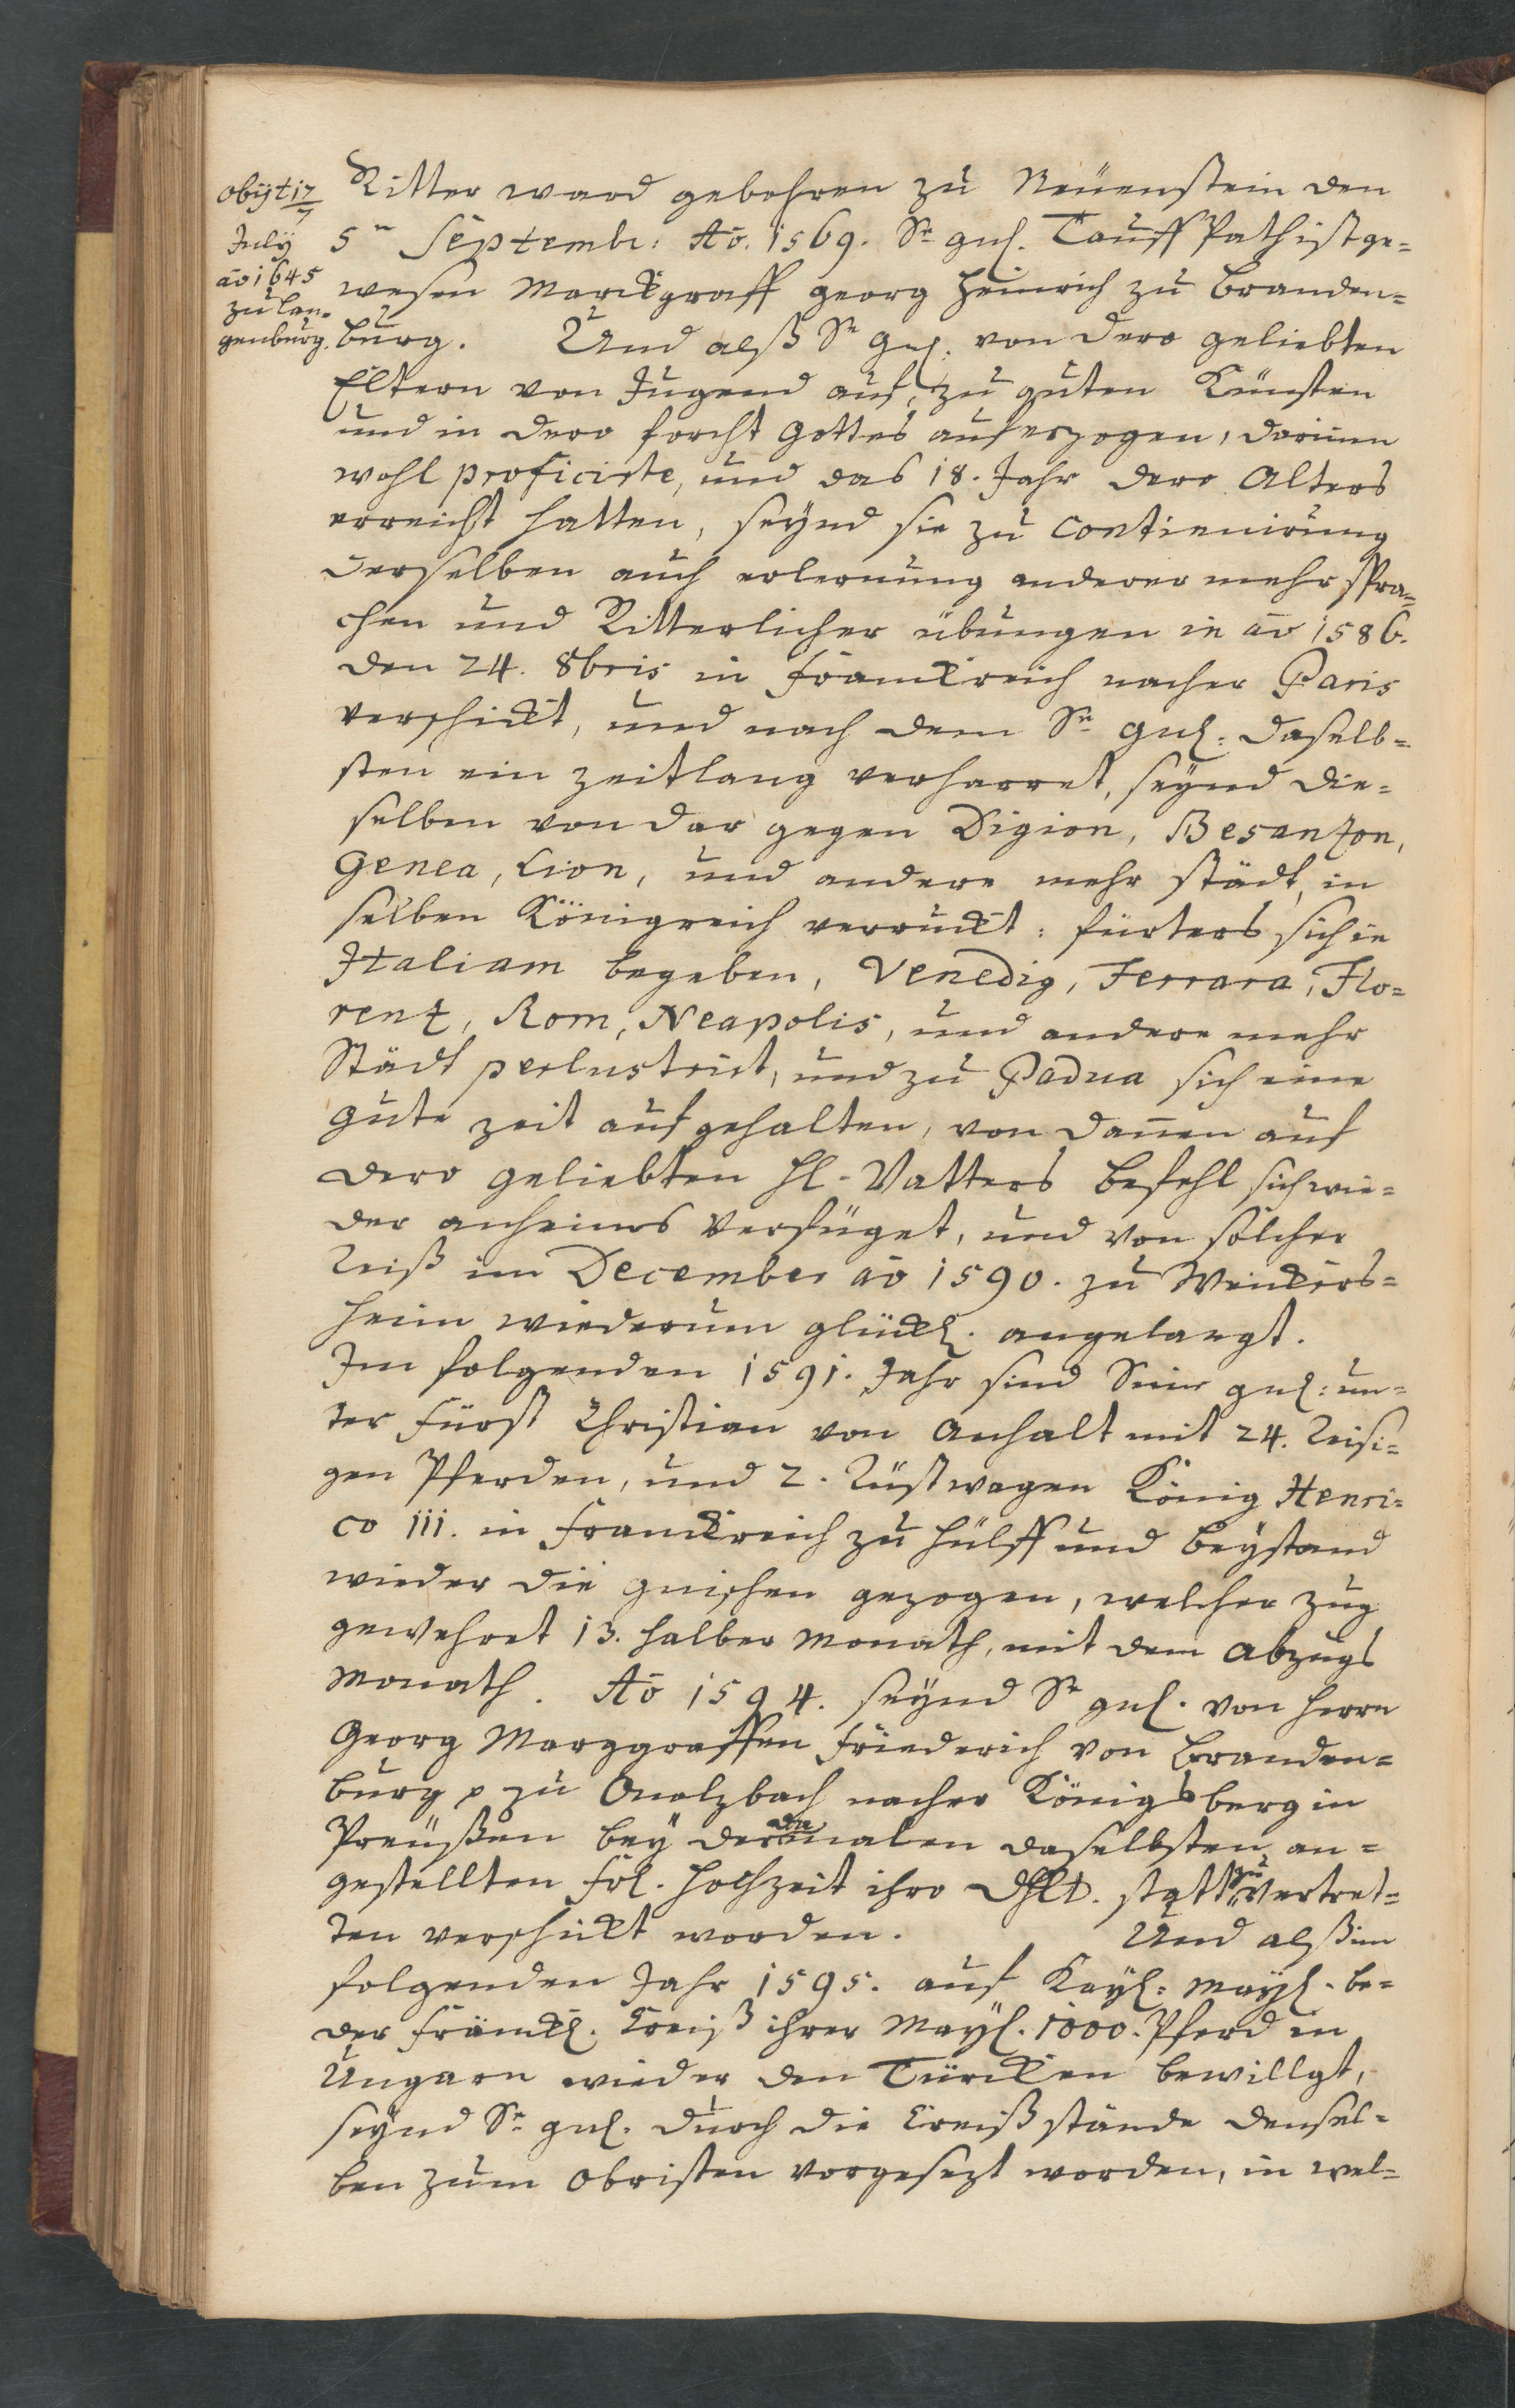 obijt 17/7
July
ao 1645
zu Lan-
genburg.
Ritter ward gebohren zu Neüenstein den
5ten Septembr: Ao. 1569. Sr gnl. Tauff Path ist ge-
wesen Marckgraff Georg Heinrich zu Branden-
burg. Und alß Sr Gnl. von dero geliebten
Eltern von Jugend auf, zu guten Künsten
und in dero forcht Gottes auferzogen, darinnen
wohl proficirte, und das 18. Jahr dero Alters
erreicht hatten, seynd sie zu Contienuirung
derselben auch erlernung anderer mehr Spra-
chen und Ritterlicher übungen in ao 1586.
den 24. 8bris in Franckreich nacher Paris
verschickt, und nach dem Sr gnl: daselb-
sten ein zeitlang verharret, seynd die-
selben von dar gegen Digion, Besanzon,
Genea, Lion, und andere mehr städt, in
selben Königreich verruckt: fürters sich in
Italiam begeben, Venedig, Ferrara, Flo-
renz, Rom, Neapolis, und andere mehr
Städt perlustrirt, und zu Padua sich eine
gute zeit aufgehalten, von dannen auf
dero geliebten Hl. Vatters befehl sich wie-
der anheims verfüget, und von solcher
Reiß im December ao 1590. zu Weickers-
heim wiederum glückl. angelangt.
Im folgenden 1591. Jahr sind Seine gnl: un-
ter Fürst Christian von Anhalt mit 24. Reisi-
gen Pferden, und 2. Rüstwagen König Henri-
co III. in Franckreich zu hülff und beystand
wieder die guischen gezogen, welcher zug
gewehret 13. halber Monath, mit dem Abzugs
Monath. Ao 1594. seynd Sr gnl. von Herrn
Georg Marggraffen Friederich von Branden-
burg p zu Onolzbach nacher Königsberg in
Preüßen bey der damalen daselbsten an-
gestellten frl. Hochzeit ihro dhlt. statt zu vertret-
ten verschickt worden. Und alß im
folgenden Jahr 1595. auf Kayl: Mayl. be-
der Fränckl. Creiß ihrer Mayl. 1000. Pferd in
Ungarn wieder den Türcken bewillgt,
seynd Sr gnl. durch die Creiß stände densel-
ben zum Obristen vorgesezt worden, in wel-